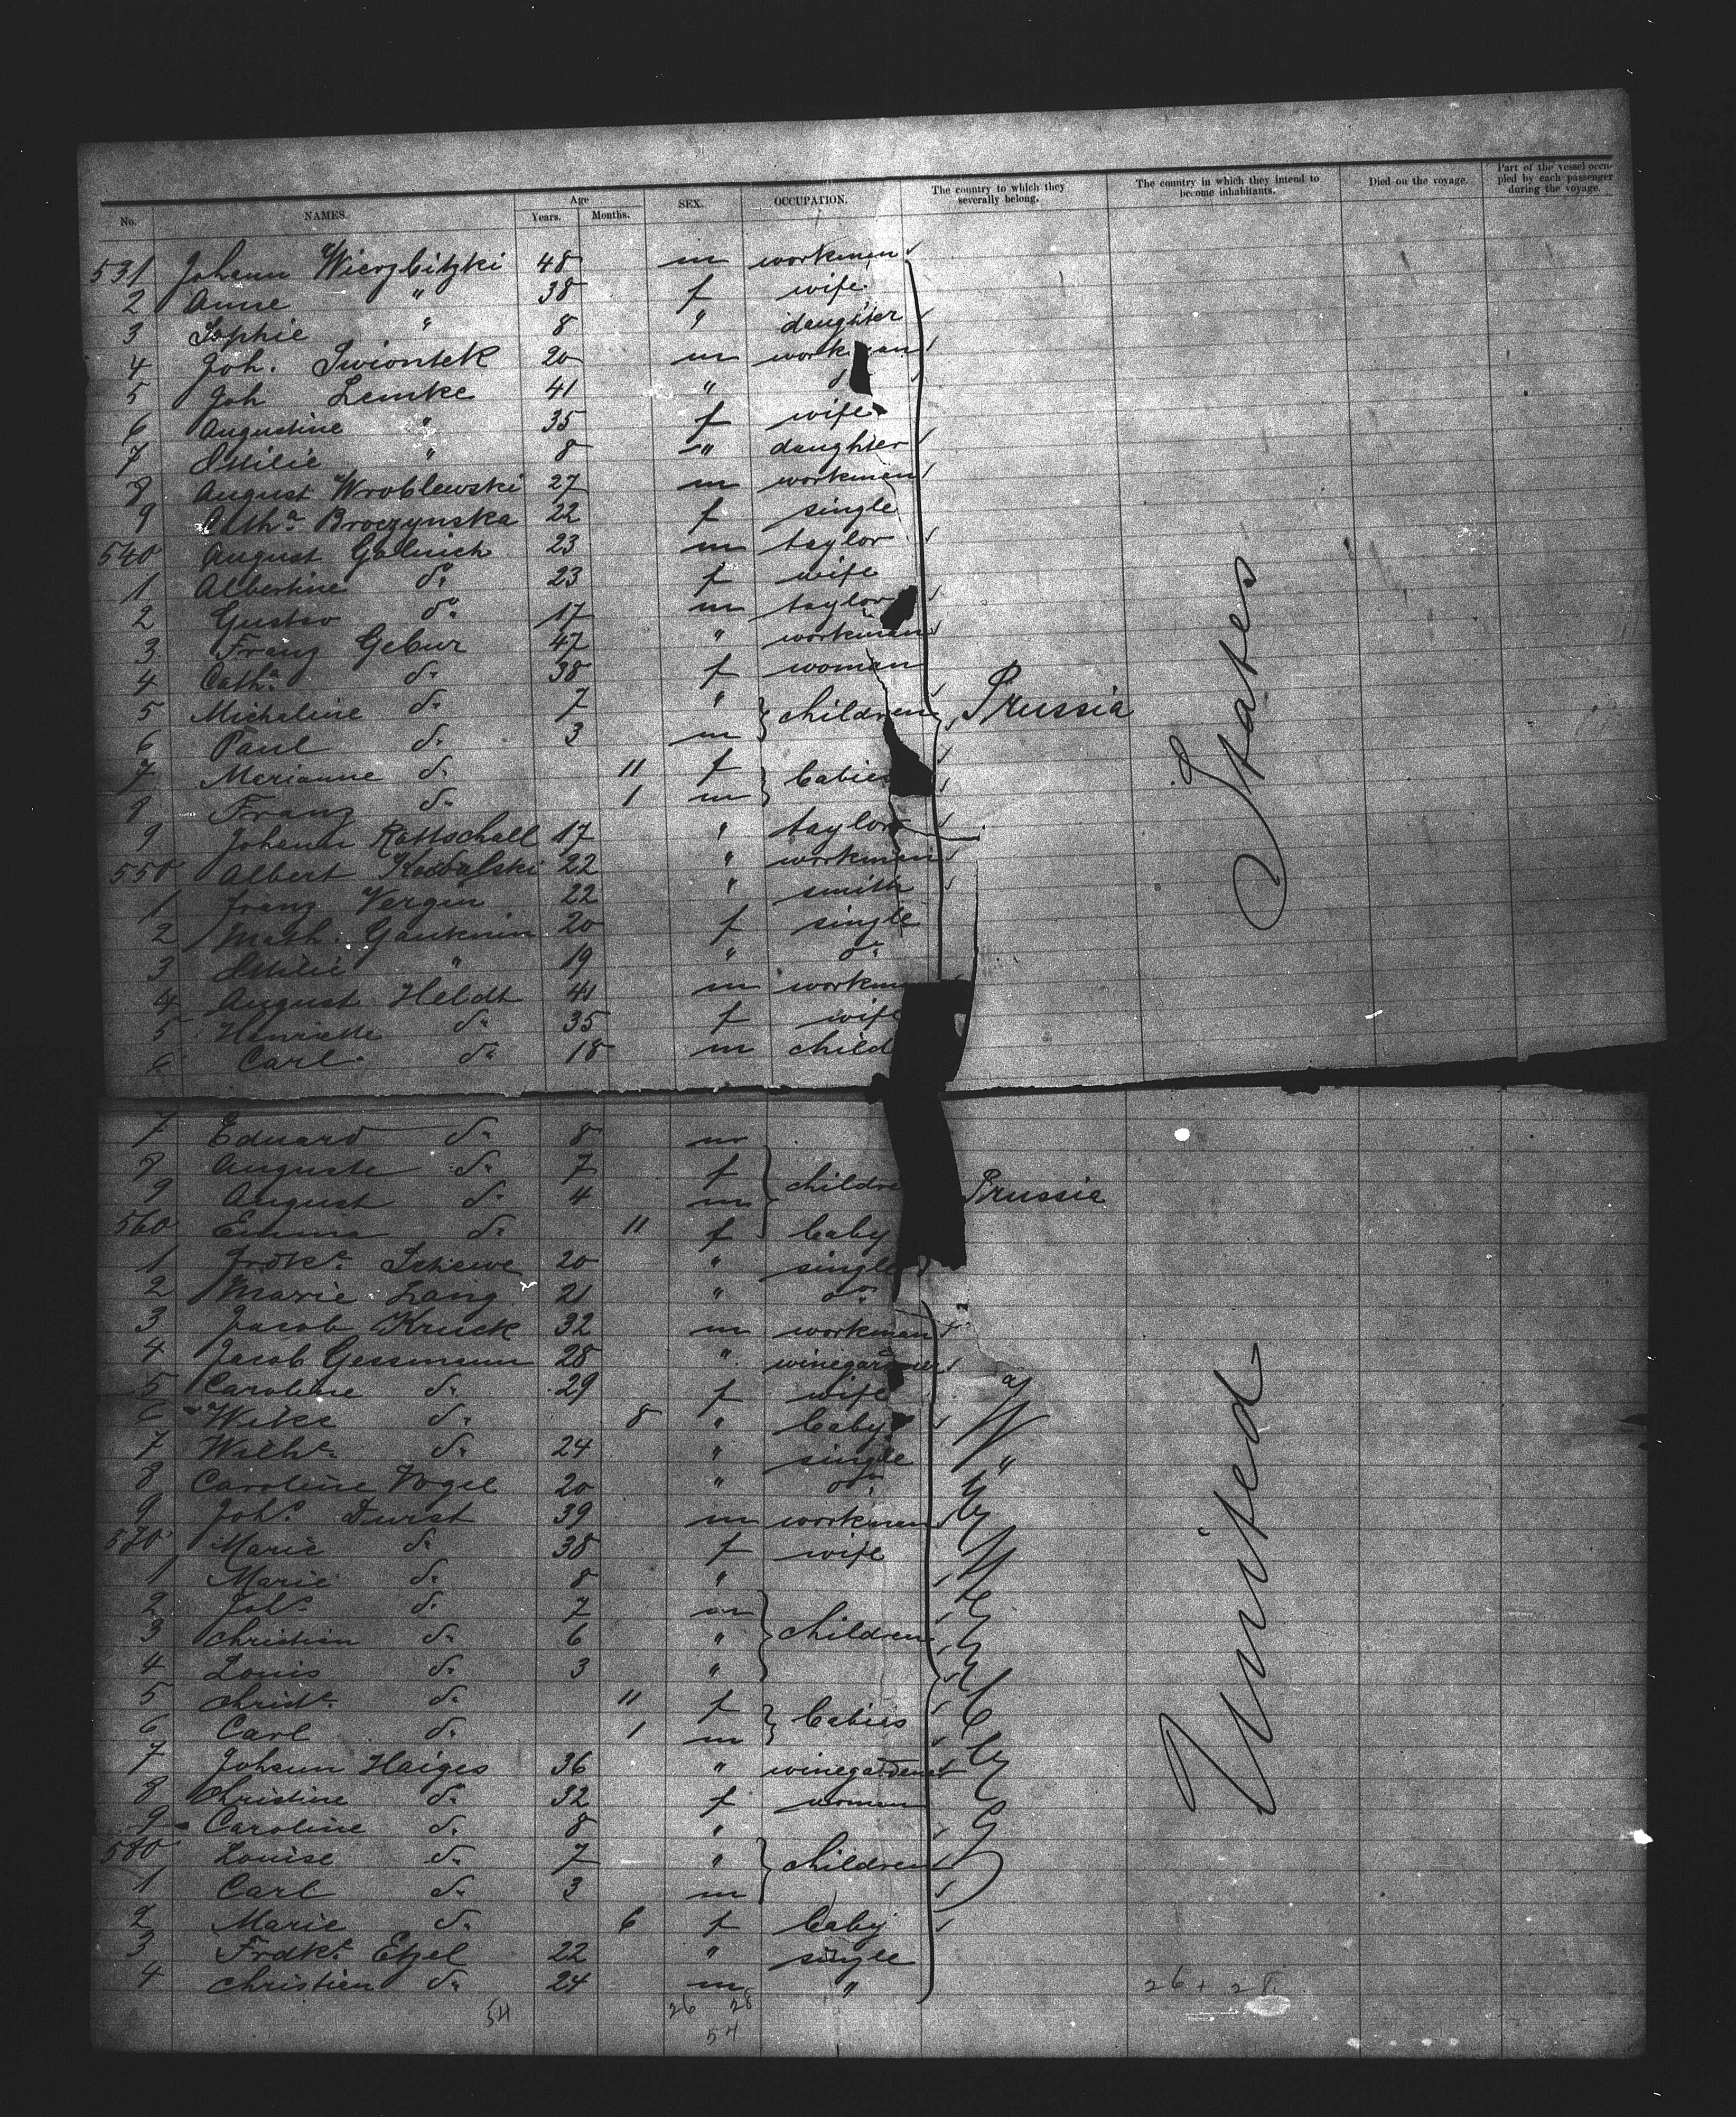 No. NAMES. Age Years. Months. SEX. OCCUPATION. The country to which they severally belong. The country in which they intend to become inhabitants. Died on the voyage. Part of the vessel occupied by each passenger during the voyage.
531 Johann Wierzbitzki 48 m workman
2 Anne " 38 f wife
3 Sophie " 8 " daughter
4 Joh. Swiontek 20 m workman
5 Joh Lemke 41 "
6 Augustine " 35 f wife
7 Ottilie " 8 " daughter
8 August Wroblewski 27 m workman
9 Cath.a Broczynska 22 f single
540 August Golnich 23 m taylor
1 Albertine do 23 f wife
2 Gustav do 17 m taylor
3 Franz Gebur 47 " workman
4 Cath.a do 38 f woman
5 Micheline do 7 " children Prussia
6 Paul do 3 m
7 Marianne do 11 f babies
8 Franz do 1 m
9 Johann Rattschall 17 " taylor
550 Albert Kowalski 22 " workman
1 Franz Vergin 22 " smith
2 Math. Gauknin 20 f single
3 Ottilie " 19 " do
4 August Heldt 41 m workm
5 Henriette do 35 f wife
6 Carl do 18 m child
7 Eduard do 8 m
8 Auguste do 7 f children
9 August do 4 m Prussia
560 Emma do 11 f baby
1 Frdke. Schewe 20 " single
2 Marie Lang 21 " do
3 Jacob Kruck 32 m workman
4 Jacob Gessmann 28 " winegardener
5 Caroline do 29 f wife
6 do 8 " baby
7 Wilhe. do 24 " single
8 Caroline Vogel 20 " do
9 Johs. Durst 39 m workman
570 Marie do 38 f wife
1 Marie do 8 "
2 Johs. do 7 m children
3 Christian do 6 "
4 Louis do 3 "
5 Christe. do 11 f babies
6 Carl do 1 m
7 Johann Haiges 36 " winegardener
8 Christine do 32 f woman
9 Caroline do 8 "
580 Louise do 7 " children
1 Carl do 3 m
2 Marie do 6 f baby
3 Frdke. Etzel 22 " single
4 Christian do 24 m "
54 26 28
54
26 + 28
Württemberg
United States